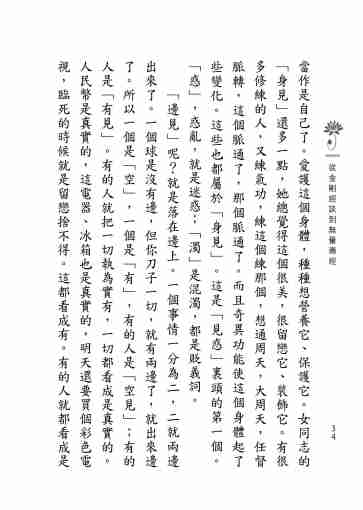 從金剛經談到無量壽經
34
當作是自己了。愛護這個身體，種種想營養它、保護它。女同志的
「身見」還多一點，她總覺得這個很美，很留戀它、裝飾它。有很
多修練的人、又練氣功，練這個練那個，想通周天，大周天，任督
脈轉，這個脈通了，那個脈通了。而且奇異功能使這個身體起了
些變化。這些也都屬於「身見」。這是「見惑」裏頭的第一個。
「惑」，惑亂，就是迷惑；「濁」是混濁，都是貶義詞。
「邊見」呢？就是落在邊上。一個事情一分為二，二就兩邊
出來了。一個球是沒有邊，但你刀子一切，就有兩邊了，就出來邊
了。所以一個是「空」，一個是「有」，有的人是「空見」；有的
人是「有見」。有的人就把一切執為實有，一切都看成是真實的。
人民幣是真實的，這電器、冰箱也是真實的，明天還要買個彩色電
視，臨死的時候就是留戀捨不得。這都看成有。有的人就都看成是